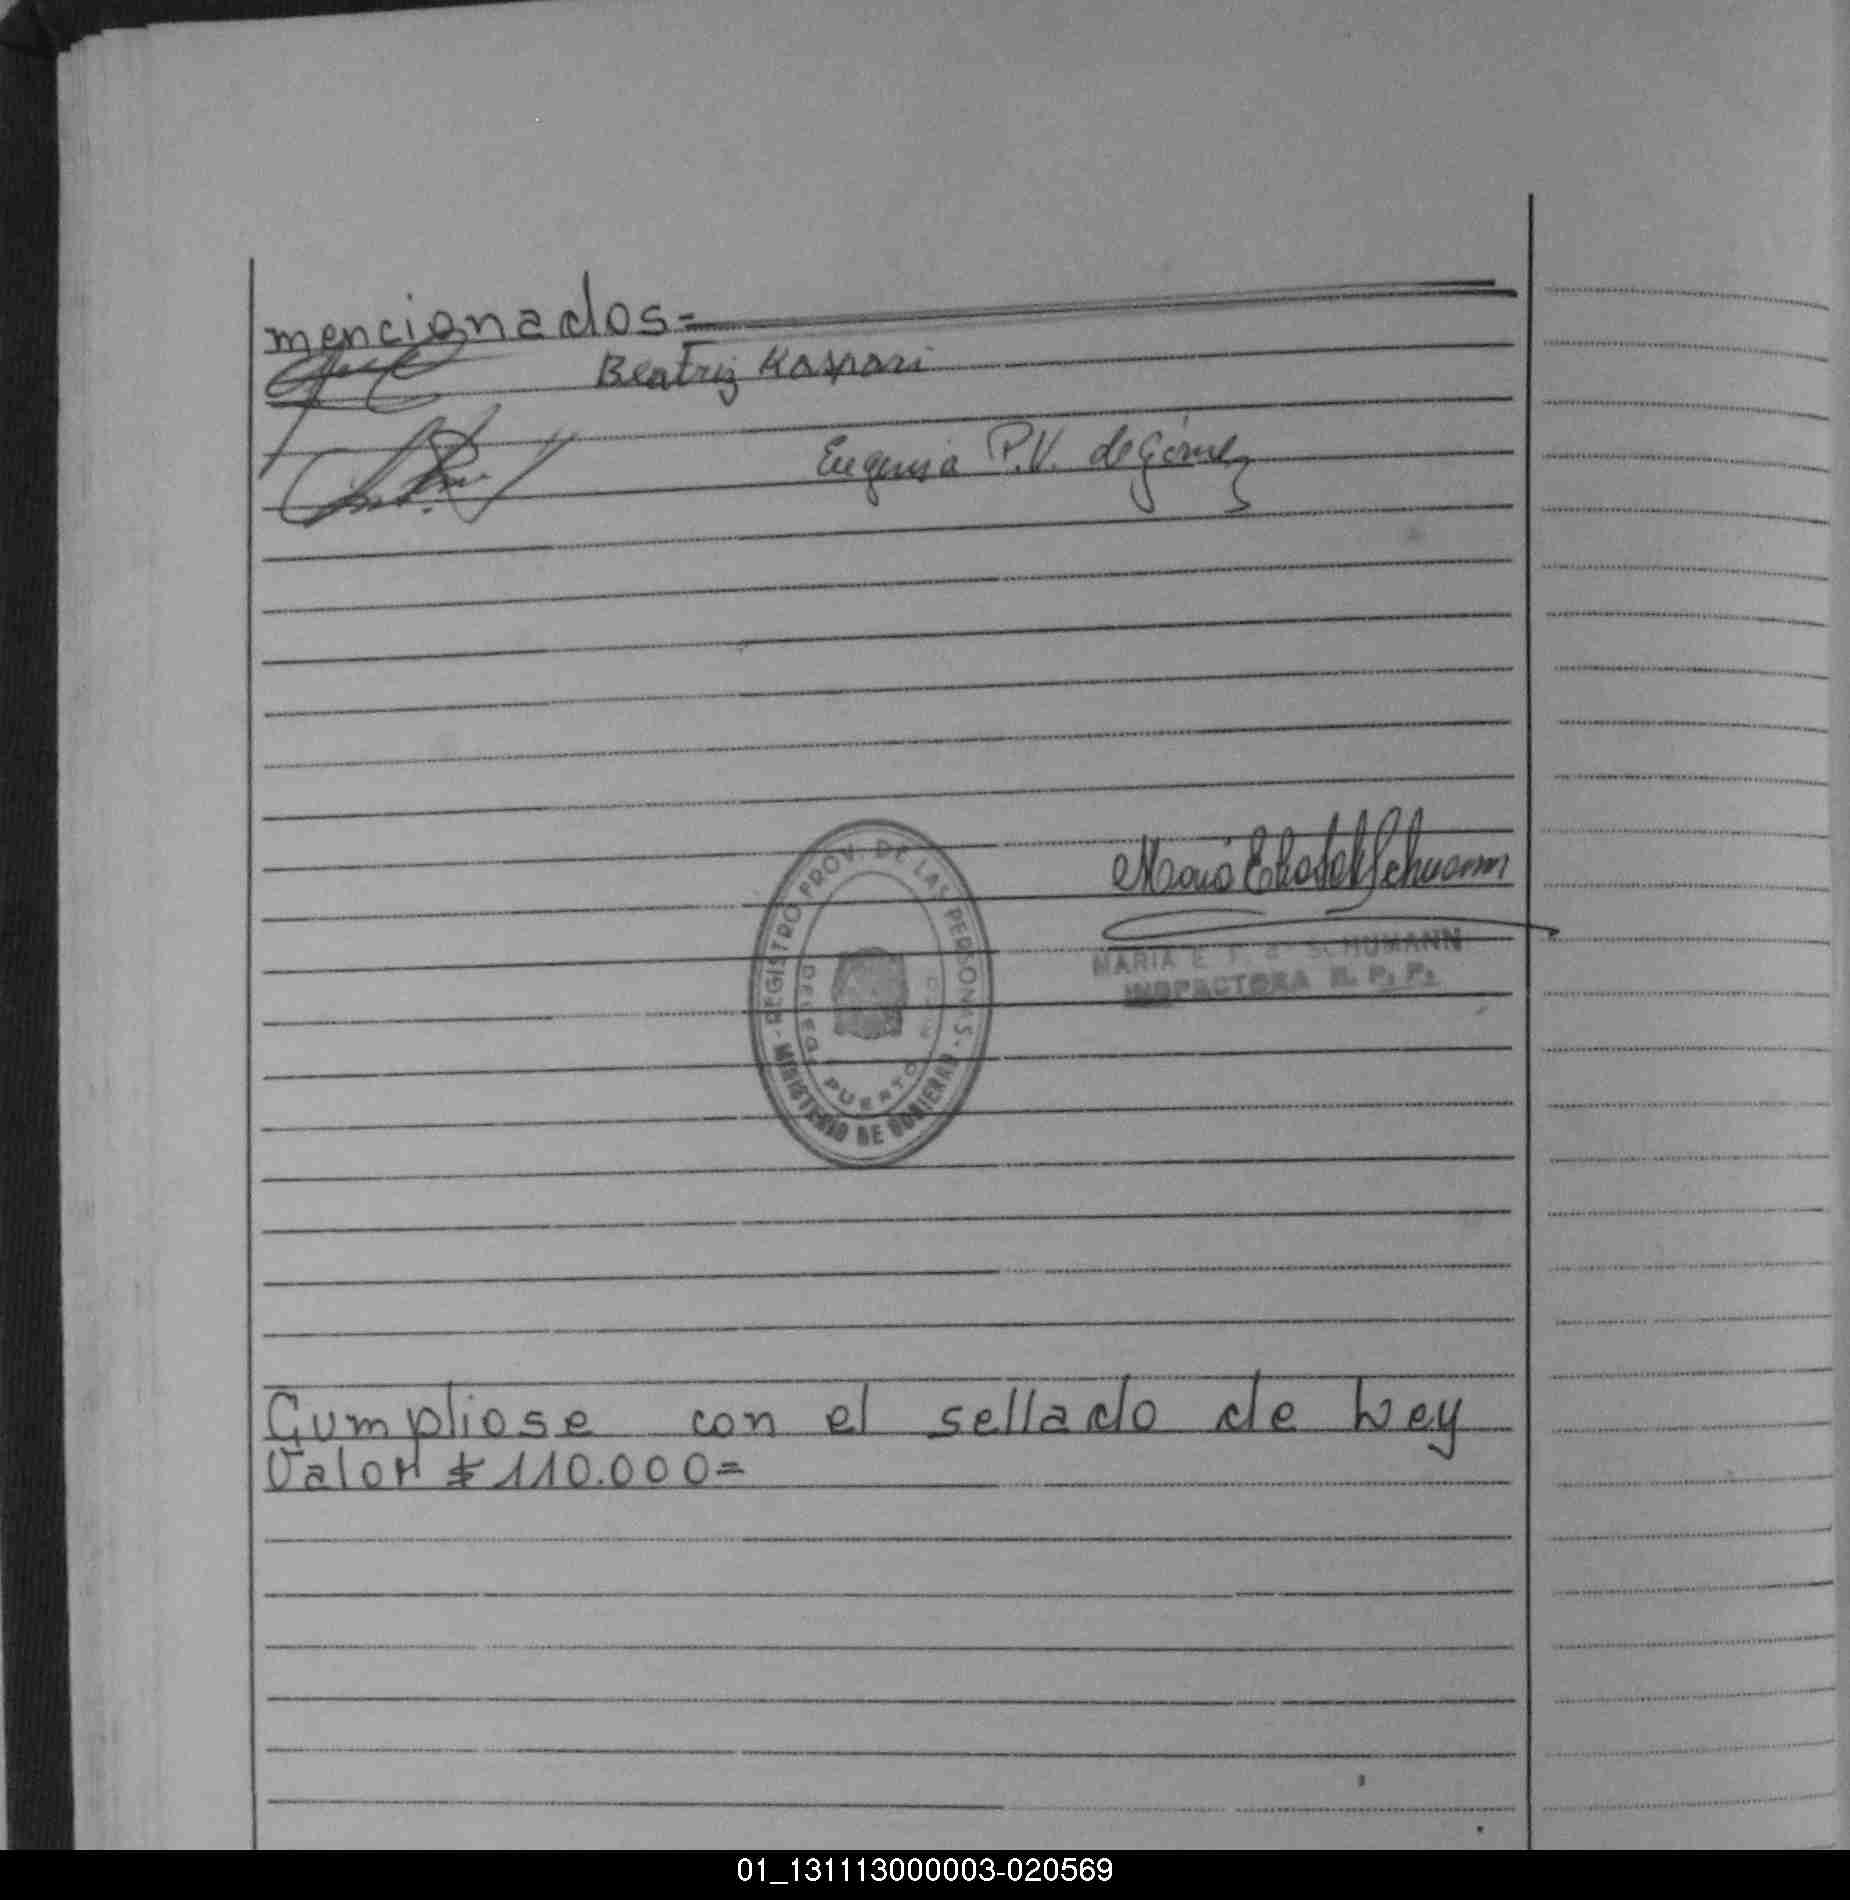 mencionados=
Beatriz Kaspari
Eugenia P.V. de Gómez
REGISTRO PROV. DE LAS PERSONAS.
MINISTERIO DE GOBIERNO
DELEG. PUERTO RICO
Schumann
MARIA E SCHUMANN
INSPECTORA R. P. P.
Cumpliose con el sellado de Ley
Valor $ 110.000=
01_131113000003-020569